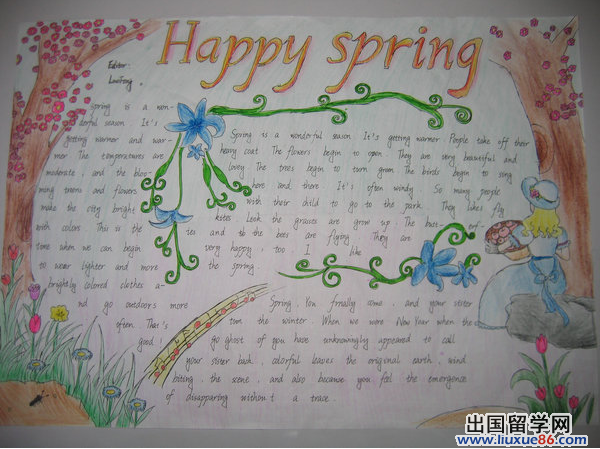 Happy spring
Editor
Spring is a won-
derful season It's
getting warmer and war-
mer The temperatures are
moderate, and the bloo-
ming treens and flowers
make the city bright
with colors This is the
time when we can begin
to wear lighter and more
brightly colored clothes a-
nd go outdoors more
often. That's
good!
Spring is a wonderful season It's getting warmer People take off their
heavy coat The flowers begin to open They are very beautiful and
lovey The trees begin to turn green The birds begin to sing
here and there It's often windy So many people
with their child to go to the park They likes fly
kites Look the grasses are grow up The butt erf-
ies and so the bees are flying They are
very happy, too I like
the spring
Spring, You finally come, and your sister
torn the winter When we were New Year when the
go ghost of you have unknowingly appeared to call
your sister back, colorful leaves the original earth, wind
biting, the scene, and also because you feel the emergence
of disapparing without a trace.
出国留学网
www.liuxue86.com